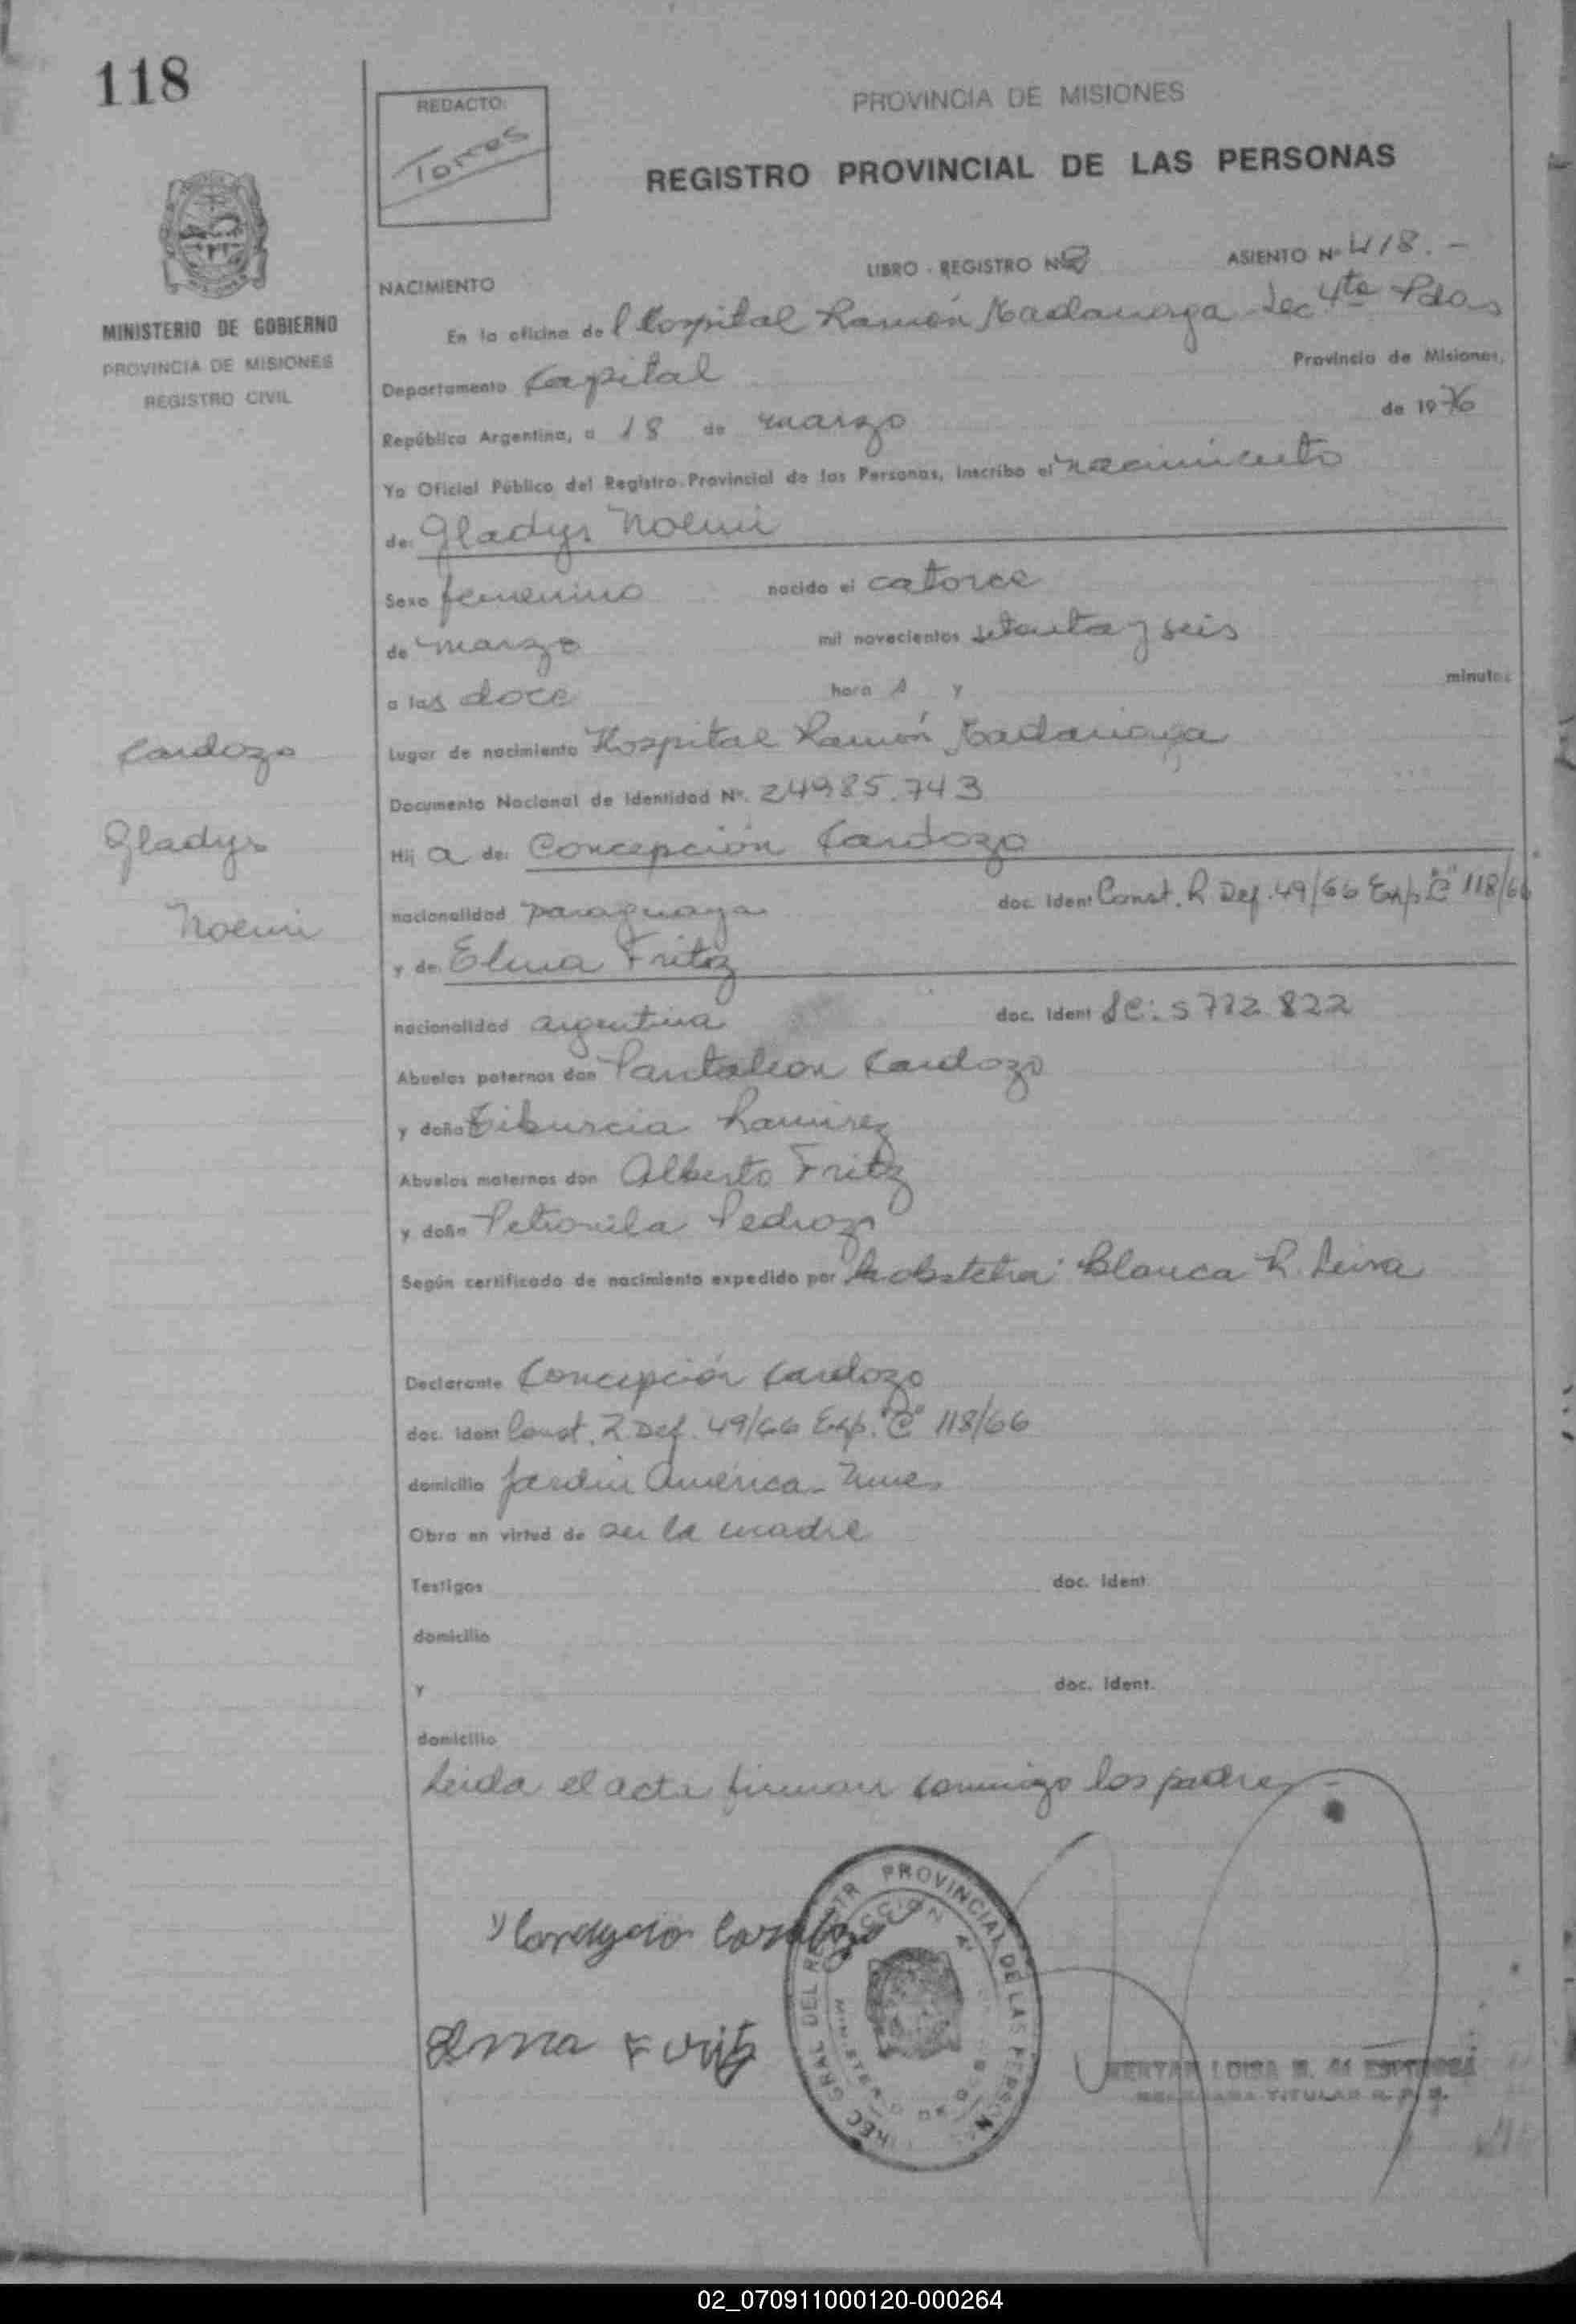 118
REDACTO:
Torres
PROVINCIA DE MISIONES
REGISTRO PROVINCIAL DE LAS PERSONAS
MINISTERIO DE GOBIERNO
PROVINCIA DE MISIONES
REGISTRO CIVIL
LIBRO - REGISTRO Nº
ASIENTO Nº 418. -
NACIMIENTO
En la oficina del Hospital Ramón Madariaga Sec. 4ta Pdas
Departamento Capital Provincia de Misiones,
República Argentina, a 18 de marzo de 1976
Yo Oficial Público del Registro Provincial de las Personas, inscribo el nacimiento
de: Gladys Noemi
Sexo femenino nacido el catorce
de marzo mil novecientos setenta y seis
a las doce hora s y minutos
Cardozo
Gladys
Noemi
Lugar de nacimiento Hospital Ramón Madariaga
Documento Nacional de Identidad Nº. 24985.743
Hij a de: Concepción Cardozo
nacionalidad paraguaya doc. Ident Const. R Def. 49/66 Exp. "C" 118/66
y de Elma Fritz
nacionalidad argentina doc. Ident 5772 822
Abuelos paternos don Pantaleon Cardozo
y doña Tiburcia Ramirez
Abuelos maternos don Alberto Fritz
y doña Petronila Pedrozo
Según certificado de nacimiento expedido por la obstetra Blanca R. Leiva
Declarante Concepción Cardozo
doc. Ident Const. R Def. 49/66 Exp. "C" 118/66
domicilio Jardin América - Mnes
Obra en virtud de ser la madre
Testigos doc. Ident
domicilio
y doc. Ident.
domicilio
Leida el acta firman conmigo los padres -
Elma Fritz
DIREC GRAL DEL REGISTR PROVINCIAL DE LAS PERSONAS
SECCION 4ª
MINISTERIO DE GOBIERNO
TITULAR R. P. P.
02_070911000120-000264